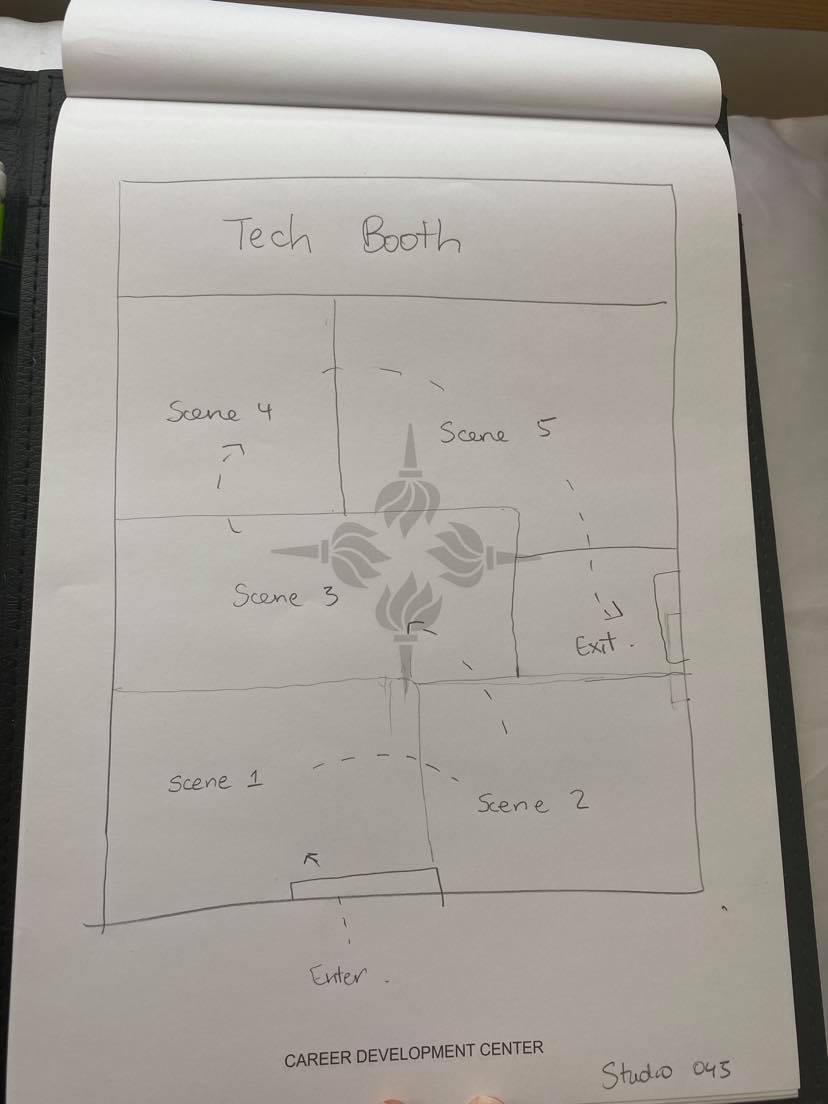 Tech Booth
Scene 4
Scene 5
Scene 3
Exit.
Scene 1
Scene 2
Enter.
CAREER DEVELOPMENT CENTER
Studio 045